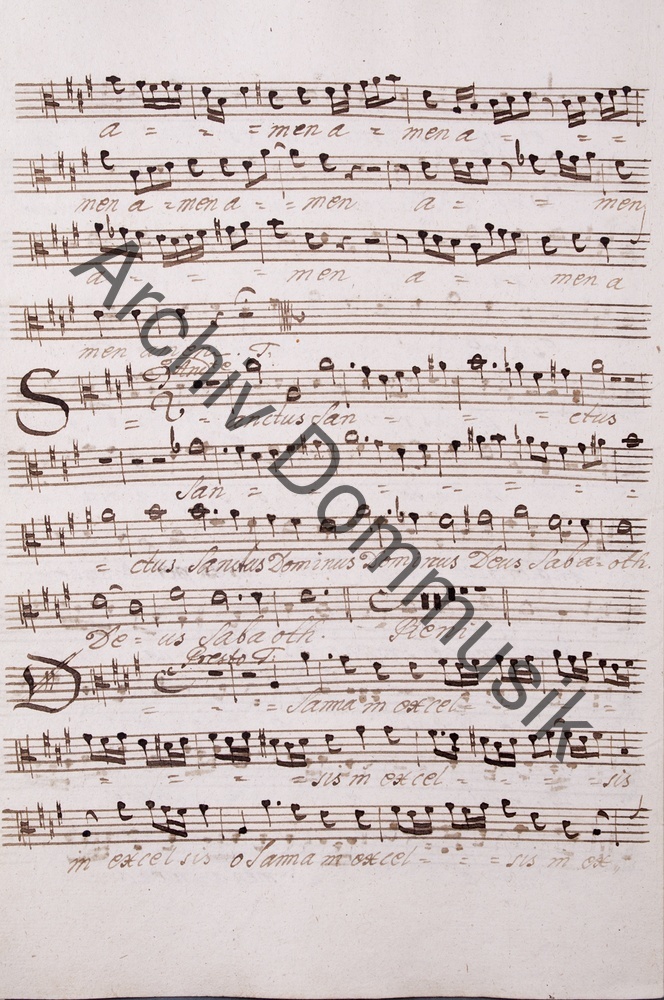 a = - = men a = men a - - -
men a = men a - - men a = = men
a = - = men a = - men a
men
Sanctus San = = = ctus
San = = = = = =
= ctus Sanctus Dominus Dominus Deus Saba = oth.
De = us Sabaoth. Pleni
Presto
O = - = Sanna in excel = - - -
= = = = sis in excel = - - = sis
in excelsis oSanna in excel = = = sis in ex
Archiv Dommusik